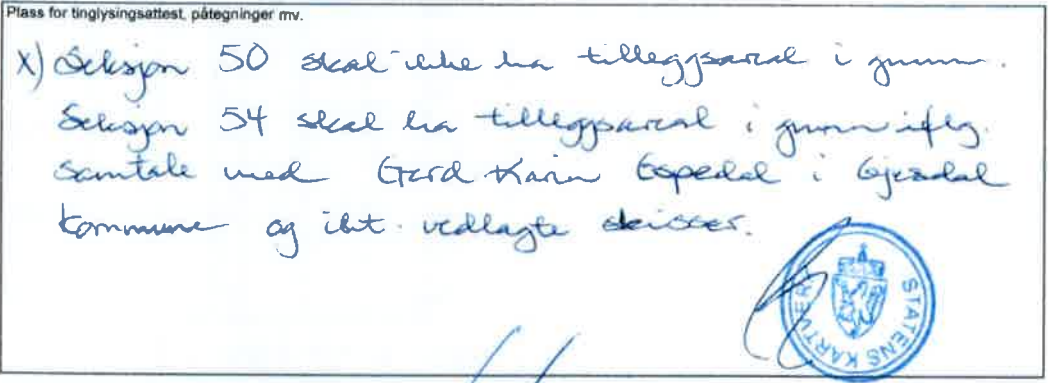 Plass for tinglysingsattest, påtegninger mv.
X) Seksjon 50 skal ikke ha tilleggsareal i grunn.
Seksjon 54 skal ha tilleggsareal i grunn iflg.
samtale med Gerd Karin Espedal i Gjesdal
kommune og iht. vedlagte skisser.
STATENS KARTVERK